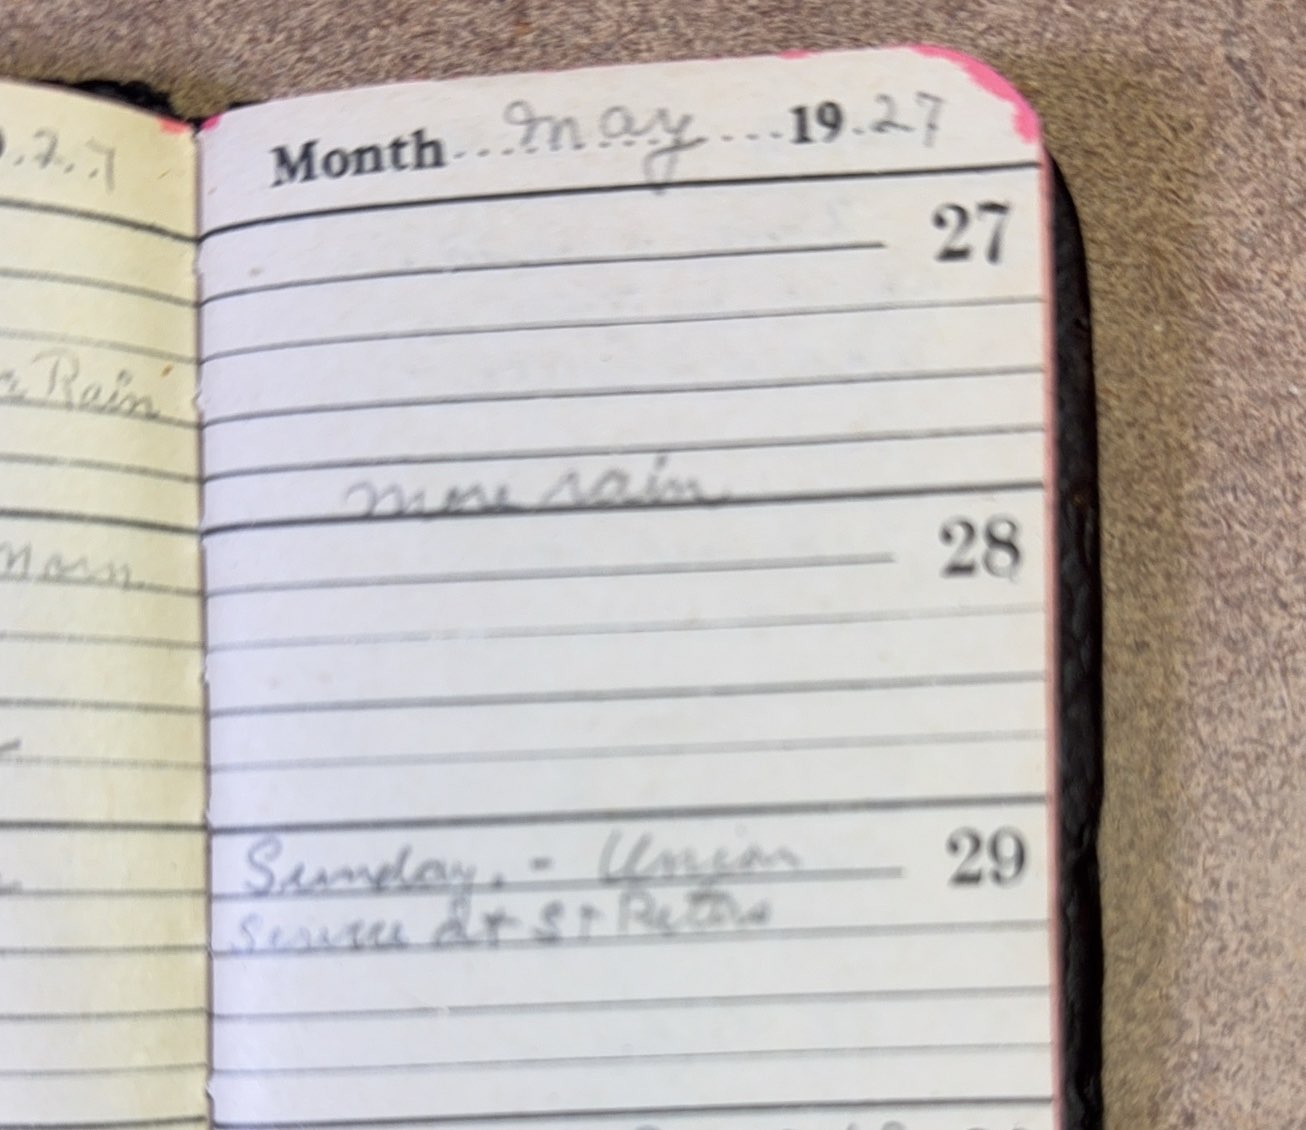 .27
Rain
Morn.
Month May 1927
27
more rain
28
Sunday. - Union 29
Service at St Peters